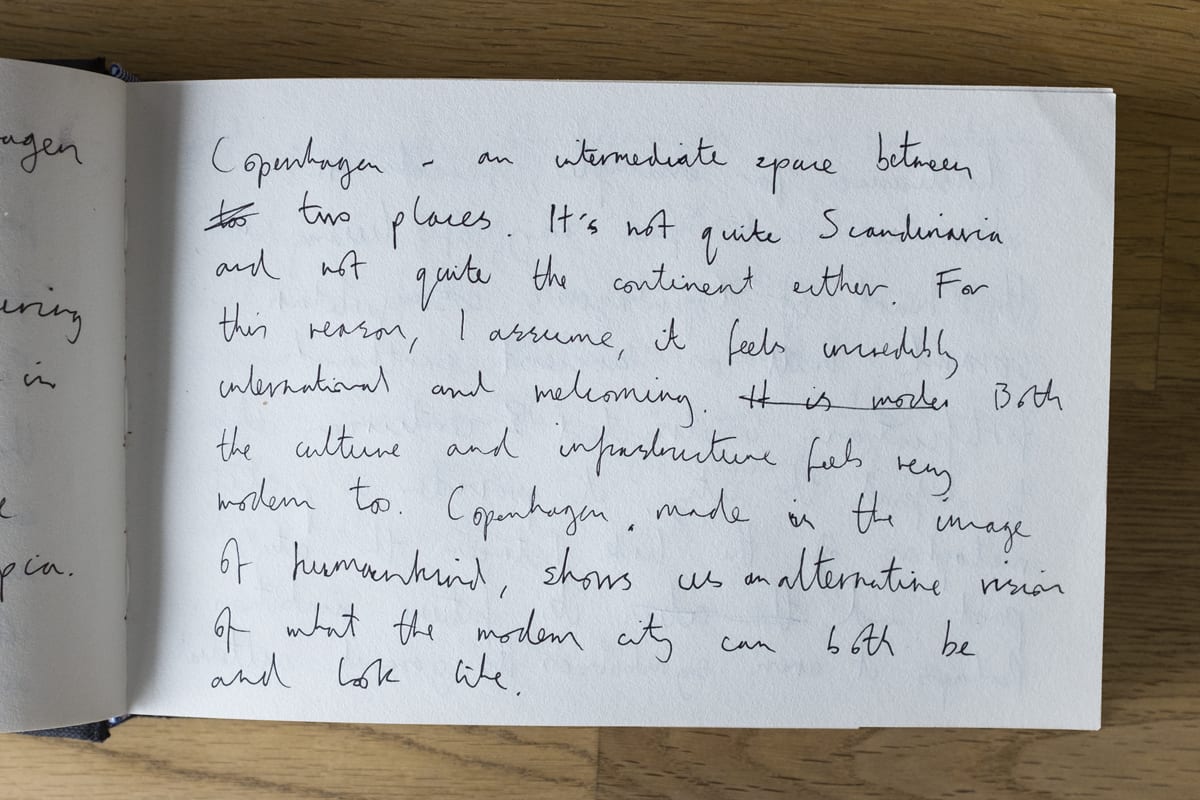 agen
ering
in
e
pia.
Copenhagen - an intermediate space between
too two places. It's not quite Scandinavia
and not quite the continent either. For
this reason, I assume, it feels incredibly
international and welcoming. It is moder Both
the culture and infrastructure feels very
modern too. Copenhagen, made in the image
of humankind, shows us an alternative vision
of what the modern city can both be
and look like.